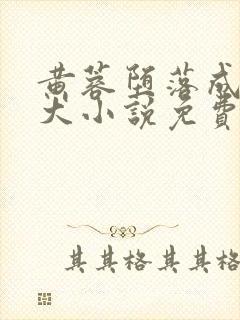 黄蓉堕落成
大小説免費
其其格其其格